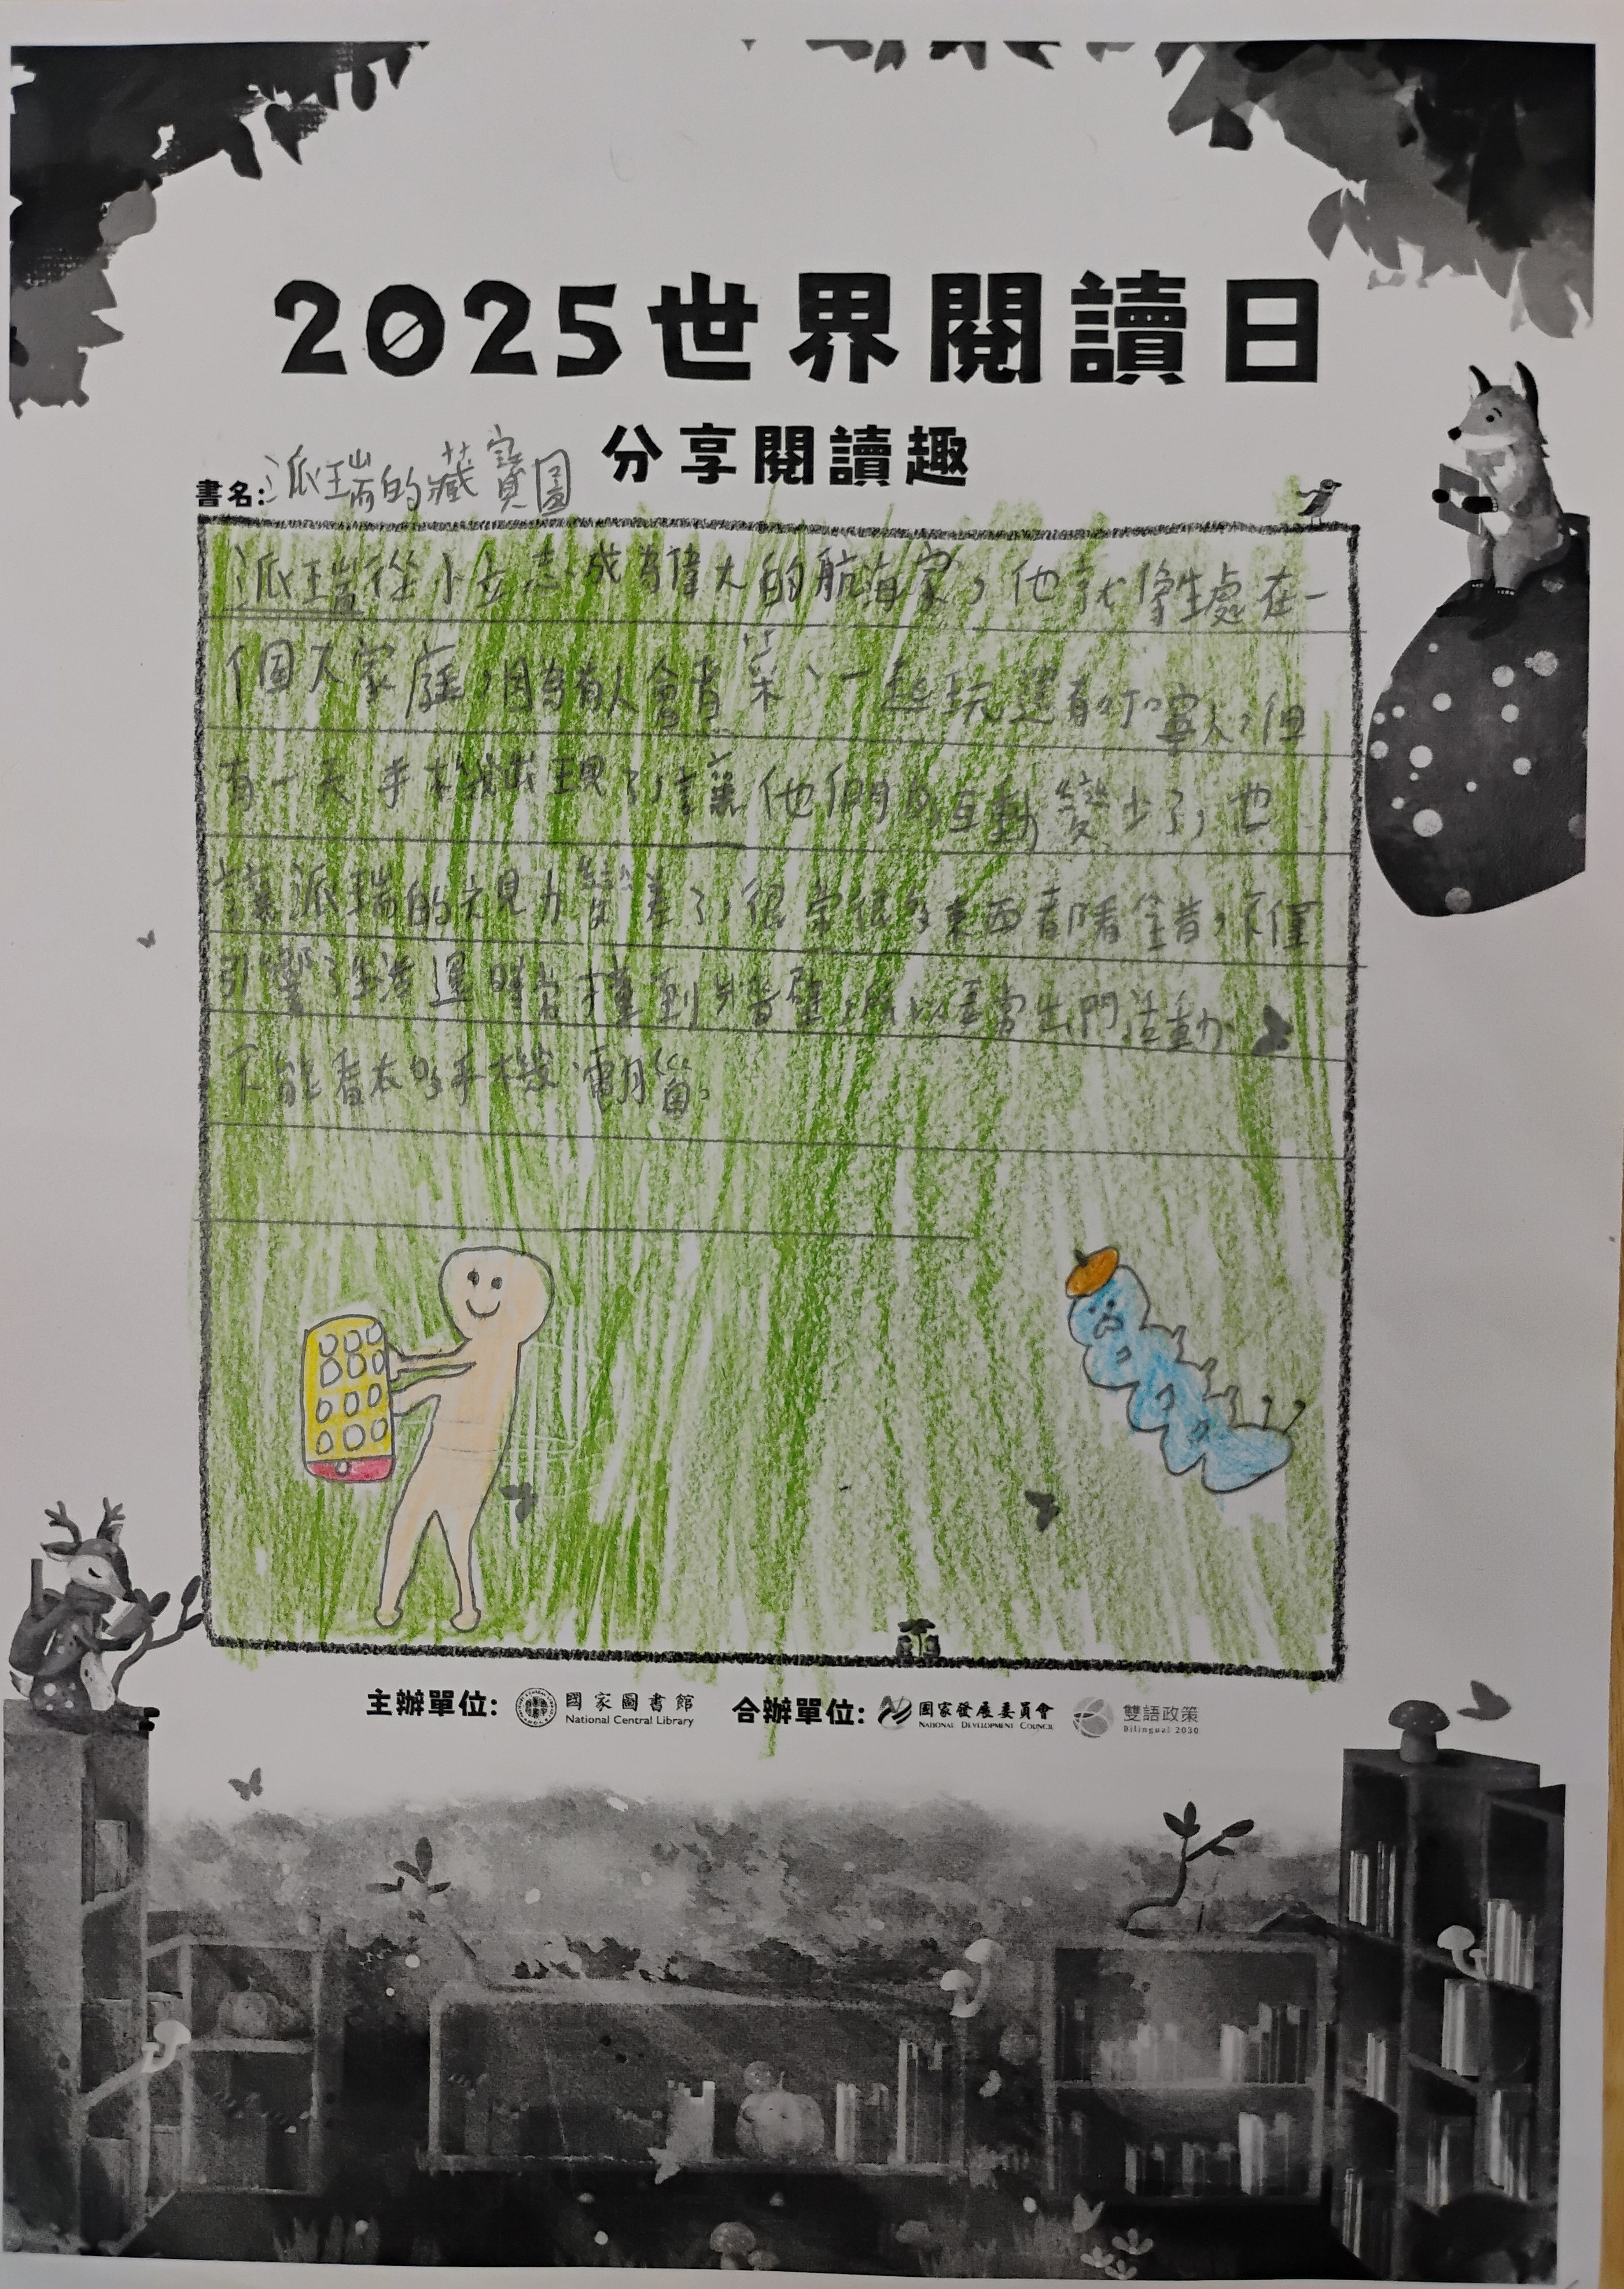 2025世界閱讀日
分享閱讀趣
書名:派瑞的藏寶圖
派瑞從小立志成為偉大的航海家,他就像生處在一
個大家庭,因為有人會煮菜、一起玩還有叮嚀人,但
有一天手機出現了,讓他們的互動變少了,也
讓派瑞的視力變差了,很常很多東西都看錯,不僅
引響了生活還時常撞到牆壁,所以要常出門活動
不能看太多手機、電腦。
主辦單位:
國家圖書館
National Central Library
合辦單位:
國家發展委員會
NATIONAL DEVELOPMENT COUNCIL
雙語政策
Bilingual 2030